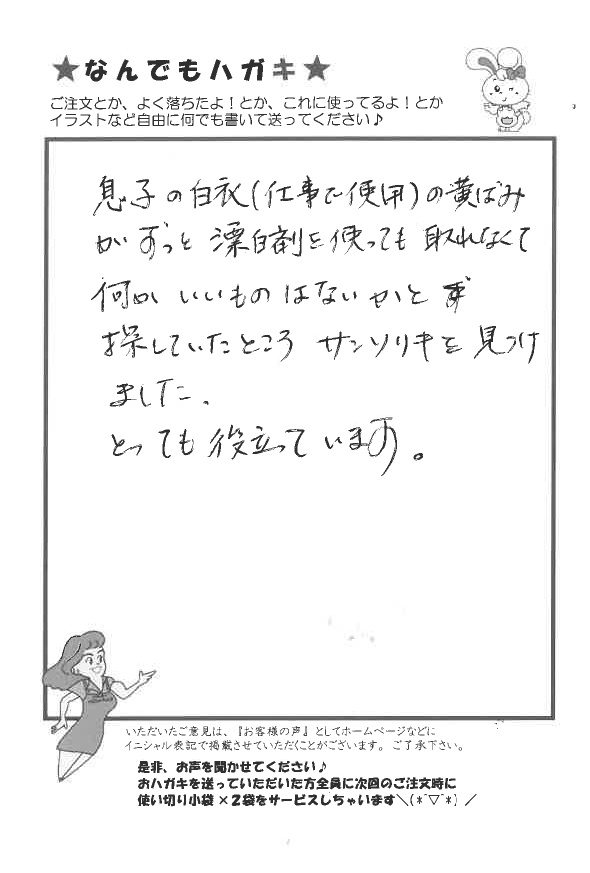 ★なんでもハガキ★
ご注文とか、よく落ちたよ！とか、これに使ってるよ！とか
イラストなど自由に何でも書いて送ってください♪
息子の白衣(仕事で使用)の黄ばみ
がずっと漂白剤を使っても取れなくて
何かいいものはないかと
探していたところ サンソリキを見つけ
ました。
とっても役立っています。
いただいたご意見は、『お客様の声』としてホームページなどに
イニシャル表記で掲載させていただくことがございます。ご了承下さい。
是非、お声を聞かせてください♪
おハガキを送っていただいた方全員に次回のご注文時に
使い切り小袋×2袋をサービスしちゃいます＼(*ˆ▽ˆ*)／